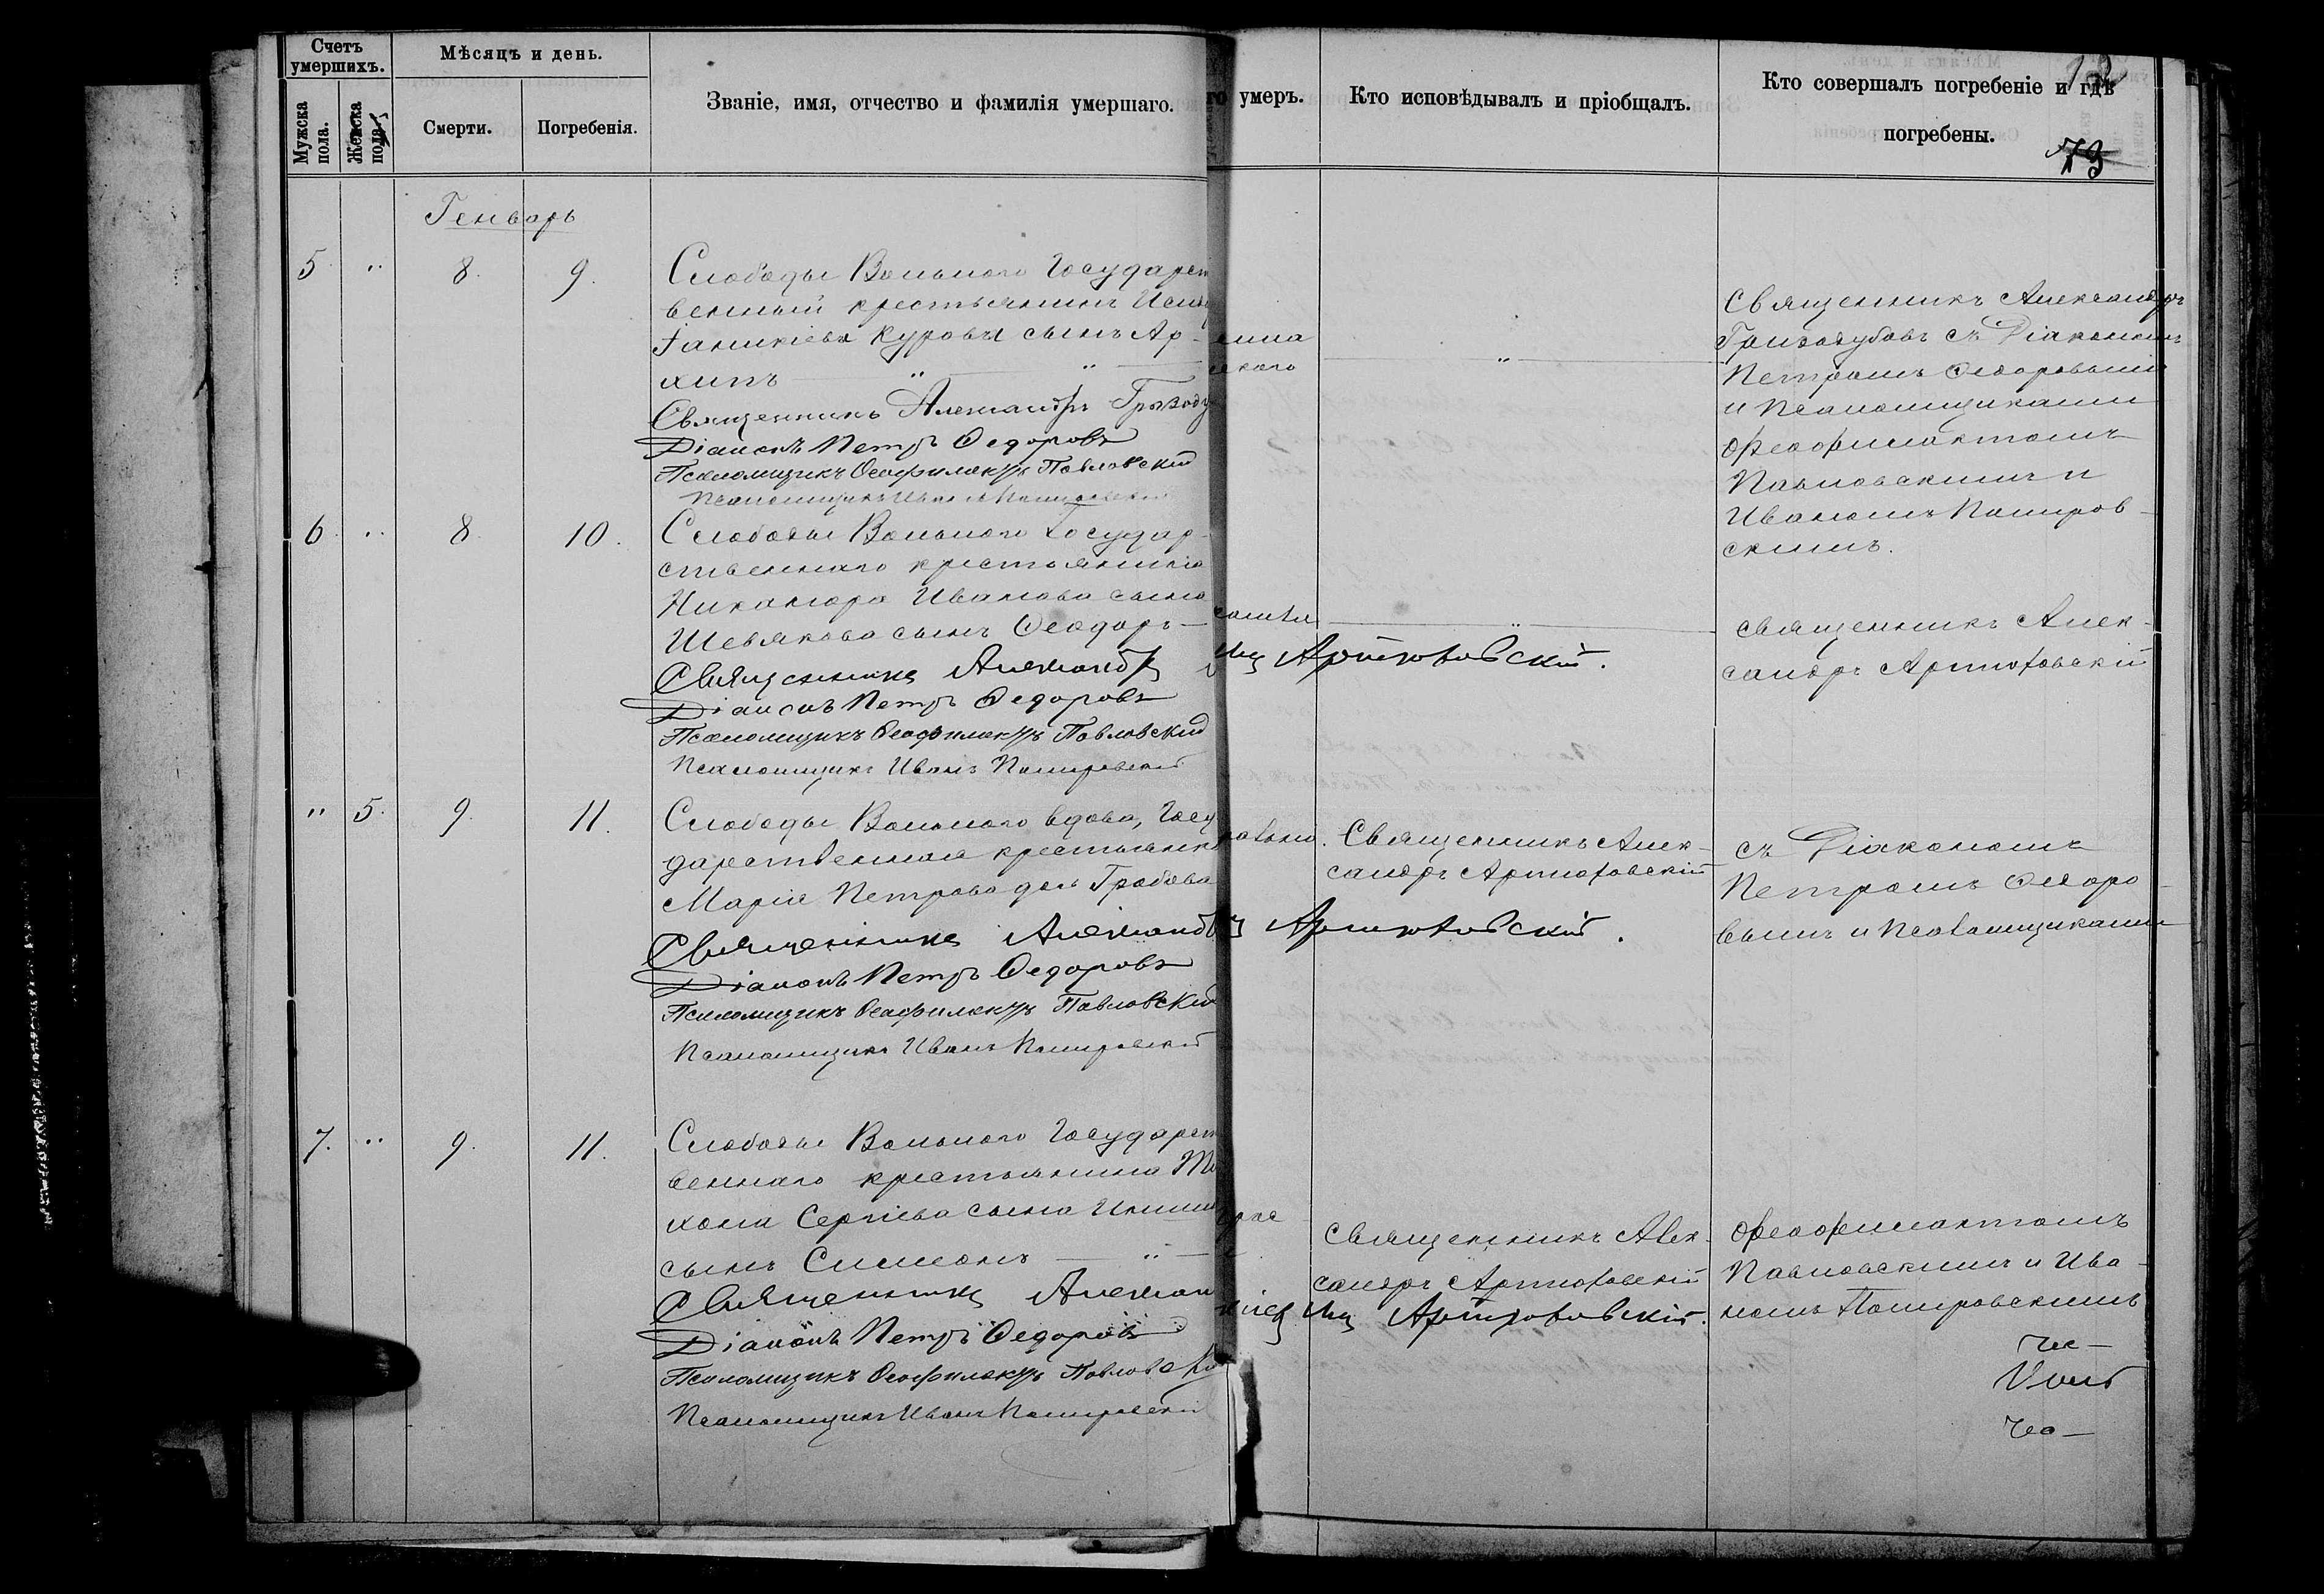 Счетъ умершихъ.
Мужска пола.
Женска пола.
Мѣсяцъ и день.
Смерти.
Погребенія.
Званіе, имя, отчество и фамилія умершаго.
го умеръ.
Кто исповѣдывалъ и пріобщалъ.
Кто совершалъ погребеніе и гдѣ
погребены.
73
Генварь
5 " 8. 9.
Слободы Вольнаго Государст
венный крестьянинъ
Іаникіевъ Куровъ сынъ Ар-
хипъ " "
Священникъ Александръ Гризоду
Діаконъ Петръ Ѳедоровъ
Псаломщикъ Ѳеофилактъ Павловскій
Псаломщикъ Иванъ
Священникъ Александръ
Гризодубовъ съ Діакономъ
Петромъ Ѳедоровымъ
и Псаломщиками
Ѳеофилактомъ
Павловскимъ и
Иваномъ
скимъ.
6. " 8. 10.
Слободы Вольнаго Государ-
ственнаго крестьянина
Никанора Иванова сына
Шевякова сынъ Ѳеодоръ
Священникъ Александръ Артюховскій.
Діаконъ Петръ Ѳедоровъ
Псаломщикъ Ѳеофилактъ Павловскій
Псаломщикъ Иванъ
Священникъ Алек-
сандръ Артюховскій
" 5. 9. 11.
Слободы Вольнаго вдова, Госу
дарственная крестьянка
Марія Петрова дочь Гробова
Священникъ Александръ Артюховскій.
Діаконъ Петръ Ѳедоровъ
Псаломщикъ Ѳеофилактъ Павловскій
Псаломщикъ Иванъ
Священникъ Алек-
сандръ Артюховскій
съ Діакономъ
Петромъ Ѳедоро-
вымъ и Псаломщиками
7. " 9. 11.
Слободы Вольнаго Государст
веннаго крестьянина Ти
хона Сергіева сына
сынъ Симеонъ "
Священникъ Алексан Артюховскій.
Діаконъ Петръ Ѳедоровъ
Псаломщикъ Ѳеофилактъ Павловскі
Псаломщикъ Иванъ
Священникъ Алек-
сандръ Артюховскій
Ѳеофилактомъ
Павловскимъ и Ива-
номъ